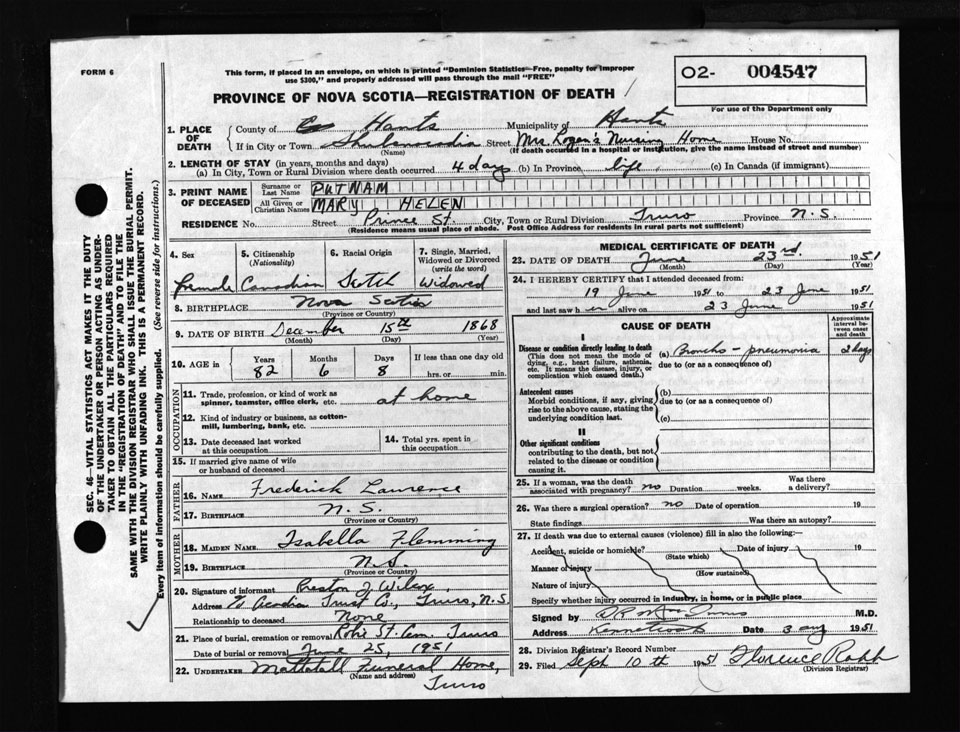 FORM 6
This form, if placed in an envelope, on which is printed "Dominion Statistics—Free, penalty for improper
use $300," and properly addressed will pass through the mail "FREE"
O2- 004547
PROVINCE OF NOVA SCOTIA—REGISTRATION OF DEATH
For use of the Department only
1. PLACE OF DEATH
County of Hants Municipality of Hants
If in City or Town Shubenacadia Street Mrs. Roger's Nursing Home House No.
(Name) (If death occurred in a hospital or institution, give the name instead of street and number)
2. LENGTH OF STAY (in years, months and days)
(a) In City, Town or Rural Division where death occurred 4 days (b) In Province life (c) In Canada (if immigrant)
3. PRINT NAME OF DECEASED
Surname or Last Name PUTNAM
All Given or Christian Names MARY HELEN
RESIDENCE No. Street Prince St. City, Town or Rural Division Truro Province N.S.
(Residence means usual place of abode. Post Office Address for residents in rural parts not sufficient)
4. Sex 5. Citizenship (Nationality) 6. Racial Origin 7. Single, Married, Widowed or Divorced (write the word)
Female Canadian Scotch Widowed
8. BIRTHPLACE Nova Scotia
(Province or Country)
9. DATE OF BIRTH December 15th 1868
(Month) (Day) (Year)
10. AGE in Years Months Days If less than one day old
82 6 8 hrs. or min.
OCCUPATION
11. Trade, profession, or kind of work as
spinner, teamster, office clerk, etc. at home
12. Kind of industry or business, as cotton-
mill, lumbering, bank, etc.
13. Date deceased last worked
at this occupation
14. Total yrs. spent in
this occupation
15. If married give name of wife
or husband of deceased
FATHER
16. NAME Frederick Lawrence
17. BIRTHPLACE N.S.
(Province or Country)
MOTHER
18. MAIDEN NAME Isabella Flemming
19. BIRTHPLACE N.S.
(Province or Country)
20. Signature of informant Preston J. Wilcox
Address % Acadian Trust Co., Truro, N.S.
Relationship to deceased None
21. Place of burial, cremation or removal Robie St. Cem. Truro
Date of burial or removal June 25, 1951
22. UNDERTAKER Mattatall Funeral Home,
(Name and address)
Truro
MEDICAL CERTIFICATE OF DEATH
23. DATE OF DEATH June 23rd. 1951
(Month) (Day) (Year)
24. I HEREBY CERTIFY that I attended deceased from:
19 June 1951 to 23 June 1951
and last saw her alive on 23 June 1951
CAUSE OF DEATH
Approximate interval between onset and death
I
Disease or condition directly leading to death
(This does not mean the mode of
dying, e.g., heart failure, asthenia,
etc. It means the disease, injury, or
complication which caused death.)
(a) Broncho-pneumonia 2 days
due to (or as a consequence of)
Antecedent causes
Morbid conditions, if any, giving
rise to the above cause, stating the
underlying condition last.
(b)
due to (or as a consequence of)
(c)
II
Other significant conditions
contributing to the death, but not
related to the disease or condition
causing it.
25. If a woman, was the death
associated with pregnancy? no Duration weeks. Was there
a delivery?
26. Was there a surgical operation? no Date of operation 19
State findings Was there an autopsy?
27. If death was due to external causes (violence) fill in also the following:—
Accident, suicide or homicide? Date of injury 19
(State which)
Manner of injury
(How sustained)
Nature of injury
Specify whether injury occurred in industry, in home, or in public place
Signed by M.D.
Address Date 3 Aug 1951
28. Division Registrar's Record Number
29. Filed Sept 10th 1951 Florence
(Division Registrar)
SEC. 46—VITAL STATISTICS ACT MAKES IT THE DUTY
OF THE UNDERTAKER OR PERSON ACTING AS UNDER-
TAKER TO OBTAIN ALL THE PARTICULARS REQUIRED
IN THE "REGISTRATION OF DEATH" AND TO FILE THE
SAME WITH THE DIVISION REGISTRAR WHO SHALL ISSUE THE BURIAL PERMIT.
WRITE PLAINLY WITH UNFADING INK. THIS IS A PERMANENT RECORD.
Every item of information should be carefully supplied. (See reverse side for instructions.)